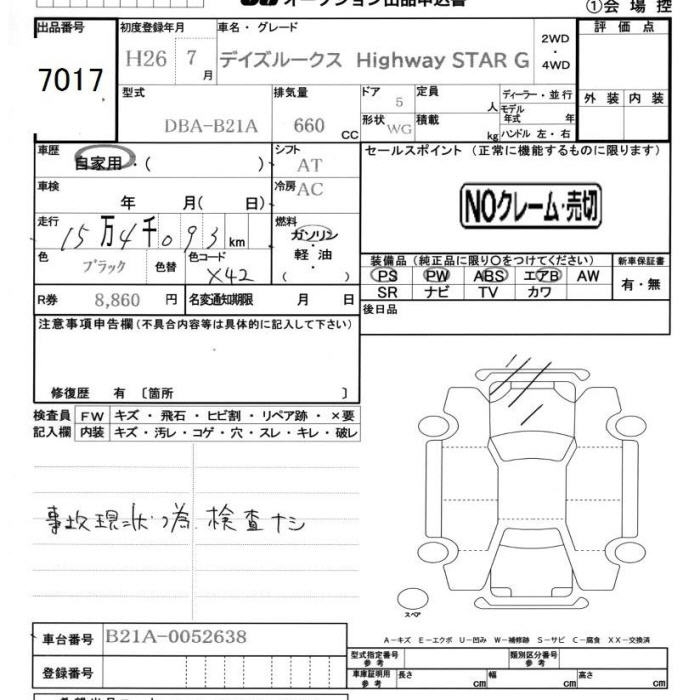 オークション出品申込書
①会場控
出品番号
7017
初度登録年月
H26 7月
車名・グレード
デイズルークス Highway STAR G
2WD・4WD
評価点
外装 内装
型式
DBA-B21A
排気量
660 CC
ドア 5
形状 WG
定員 人
積載 kg
ディーラー・並行
モデル年式 年
ハンドル 左・右
車歴
自家用・( )
シフト
AT
車検
年 月( 日)
冷房
AC
走行
15万4千093km
燃料
ガソリン・軽油・( )
色
ブラック
色替
色コード
X42
R券 8,860 円
名変通知期限 月 日
セールスポイント (正常に機能するものに限ります)
NOクレーム・売切
装備品 (純正品に限り○をつけてください)
新車保証書
PS PW ABS エアB AW
有・無
SR ナビ TV カワ
後日品
注意事項申告欄(不具合内容等は具体的に記入して下さい)
修復歴 有 〔箇所 〕
検査員記入欄
FW キズ・飛石・ヒビ割・リペア跡・×要
内装 キズ・汚レ・コゲ・穴・スレ・キレ・破レ
事故現状の為 検査ナシ
スペア
A-キズ E-エクボ U-凹み W-補修跡 S-サビ C-腐食 XX-交換済
車台番号 B21A-0052638
登録番号
型式指定番号 参考
類別区分番号 参考
車庫証明用 参考
長さ cm 幅 cm 高さ cm